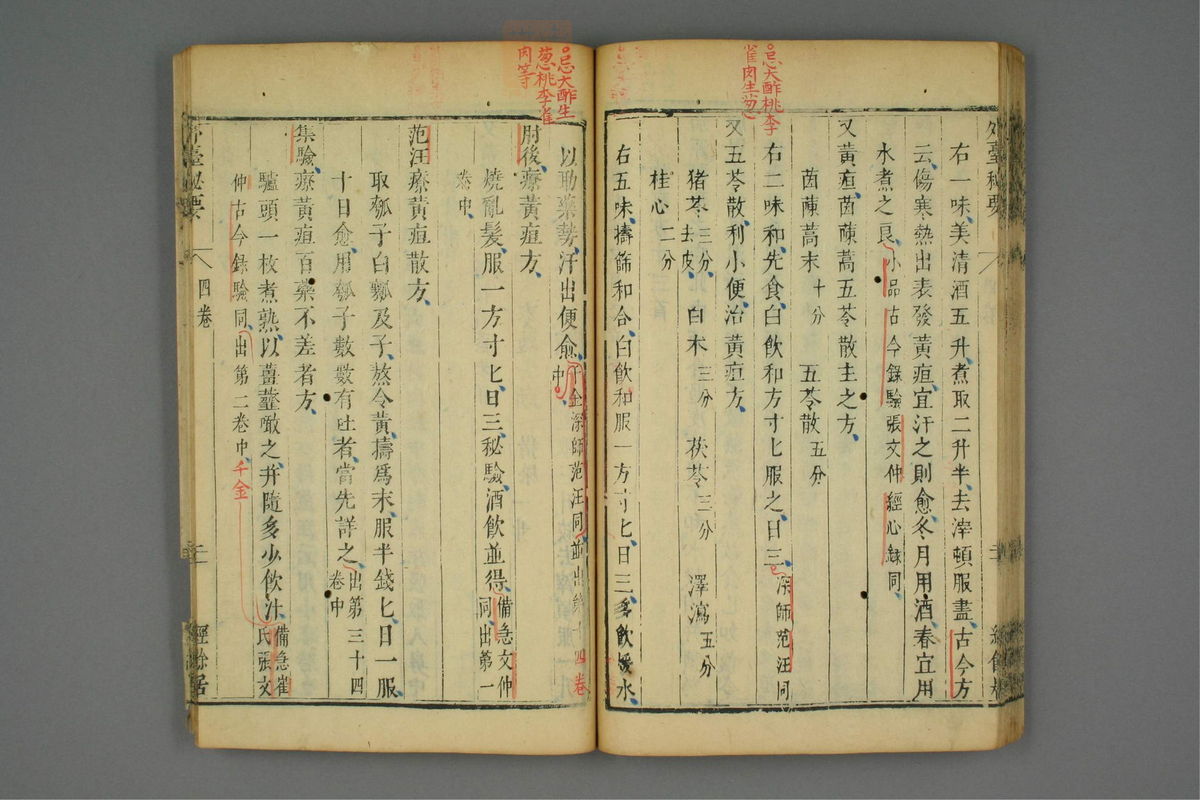 外臺秘要
經餘居
忌大酢桃李
雀肉生葱
右一味美清酒五升煮取二升半去滓頓服盡古今方
云傷寒熱出表發黃疸宜汗之則愈冬月用酒春宜用
水煮之良小品古今錄驗張文仲經心錄同
又黃疸茵蔯蒿五苓散主之方
茵蔯蒿末十分 五苓散五分
右二味和先食白飲和方寸匕服之日三深師范汪同
又五苓散利小便治黃疸方
猪苓三分去皮 白朮三分 茯苓三分 澤瀉五分
桂心二分
右五味擣篩和合白飲和服一方寸匕日三多飲煖水
忌大酢生
葱桃李雀
肉等
以助藥勢汗出便愈千金深師范汪同並出第十四卷中
肘後療黃疸方
燒亂髮服一方寸匕日三秘驗酒飲並得備急文仲同出第一
卷中
范汪療黃疸散方
取瓠子白瓤及子熬令黃擣爲末服半錢匕日一服
十日愈用瓠子數數有吐者當先詳之出第三十四卷中
集驗療黃疸百藥不差者方
驢頭一枚煮熟以薑虀噉之并隨多少飲汁備急崔氏張文
仲古今錄驗同出第二卷中千金
外臺秘要 四卷
經餘居